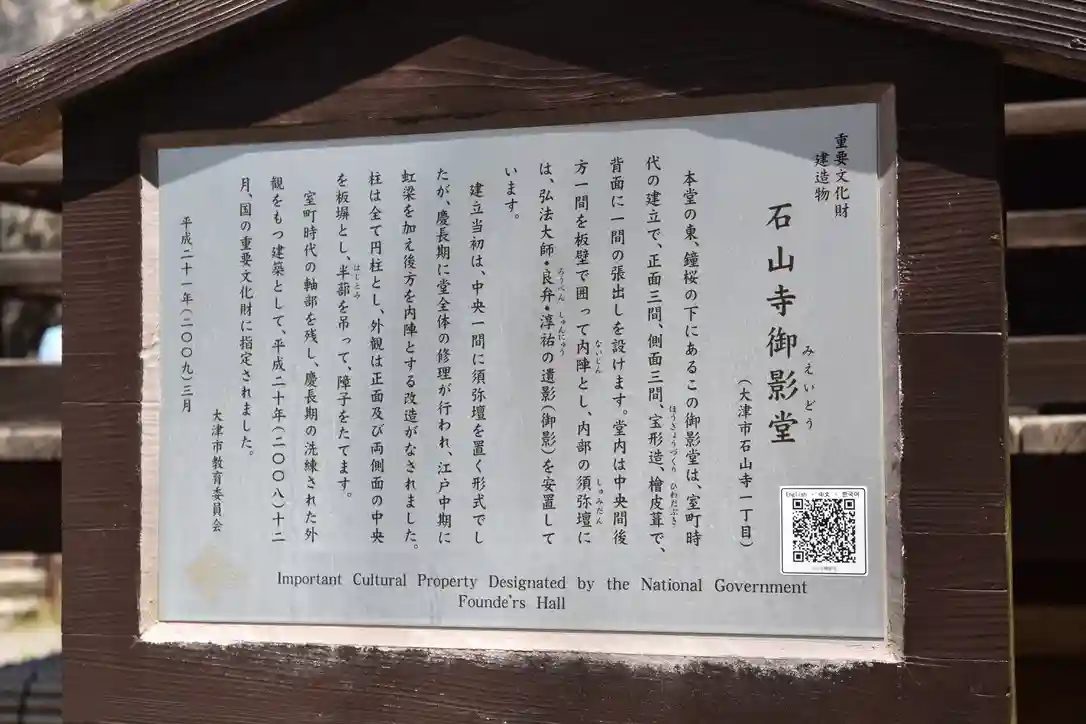 重要文化財
建造物
石山寺御影堂
みえいどう
(大津市石山寺一丁目)
本堂の東、鐘桜の下にあるこの御影堂は、室町時
代の建立で、正面三間、側面三間、宝形造、檜皮葺で、
ほうぎょうづくり ひわだぶき
背面に一間の張出しを設けます。堂内は中央間後
方一間を板壁で囲って内陣とし、内部の須弥壇に
ないじん しゅみだん
は、弘法大師・良弁・淳祐の遺影(御影)を安置して
ろうべん しゅんにゅう
います。
建立当初は、中央一間に須弥壇を置く形式でし
たが、慶長期に堂全体の修理が行われ、江戸中期に
虹梁を加え後方を内陣とする改造がなされました。
柱は全て円柱とし、外観は正面及び両側面の中央
を板塀とし、半蔀を吊って、障子をたてます。
はじとみ
室町時代の軸部を残し、慶長期の洗練された外
観をもつ建築として、平成二十年(二〇〇八)十二
月、国の重要文化財に指定されました。
平成二十一年(二〇〇九)三月
大津市教育委員会
English ・ 中文 ・ 한국어
Important Cultural Property Designated by the National Government
Founde'rs Hall